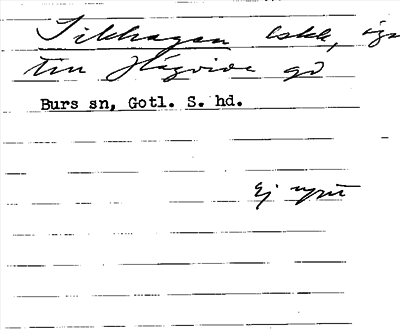 Silkhagen bskk, äga
till Hägvide gd
Burs sn, Gotl. S. hd.
Ej uppt